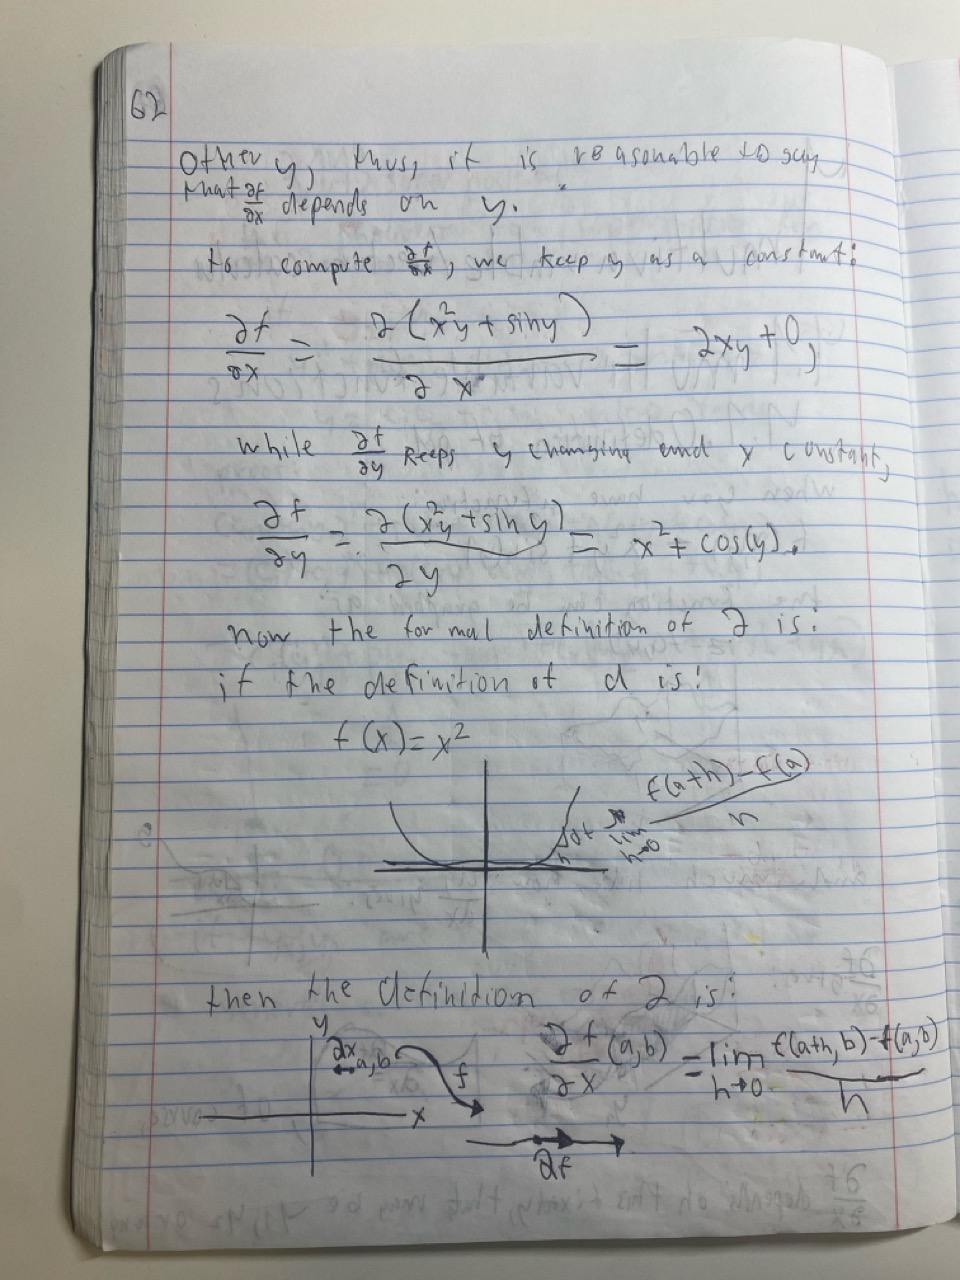 62
other y, thus, it is reasonable to say
that ∂f/∂x depends on y.
to compute ∂f/∂x, we keep y as a constant:
∂f/∂x = ∂(x²y + siny)/∂x = 2xy + 0,
while ∂f/∂y keeps y changing and x constant,
∂f/∂y = ∂(x²y + sin y)/∂y = x² + cos(y).
now the formal definition of ∂ is:
if the definition of d is:
f(x) = x²
df
h
lim h→0 f(a+h) - f(a)/h
then the definidion of ∂ is:
y
∂x
a,b
f
x
∂f/∂x (a,b) = lim h→0 f(a+h, b) - f(a, b)/h
∂f